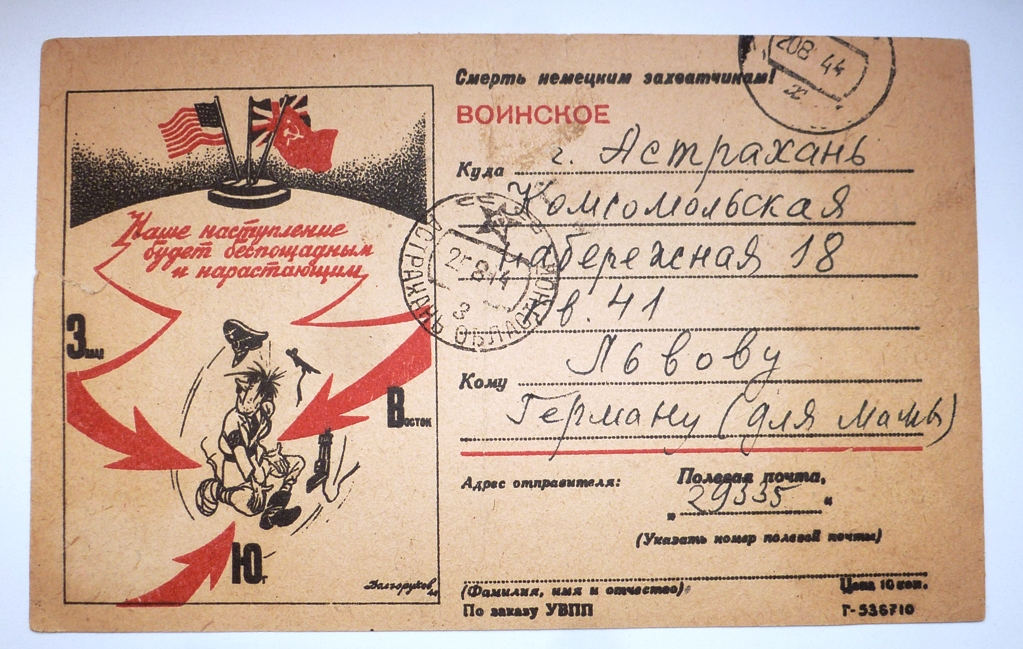 Смерть немецким захватчикам!
ВОИНСКОЕ
208 44
Куда г. Астрахань
Комсомольская
набережная 18
кв. 41
Кому Львову
Герману (для мамы)
Адрес отправителя: Полевая почта,
„ 29335 “
(Указать номер полевой почты)
(Фамилия, имя и отчество)
По заказу УВПП
Цена 10 коп.
Г-536710
АСТРАХАНЬ ОБЛАСТН
25 8 44
3
Наше наступление
будет беспощадным
и нарастающим
Запад
Восток
Юг
Долгоруков